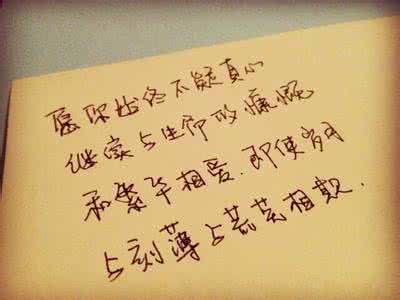 愿你始终不疑真心
继续与生命的慷慨
和繁华相爱.即使岁月
与刻薄与荒芜相欺.